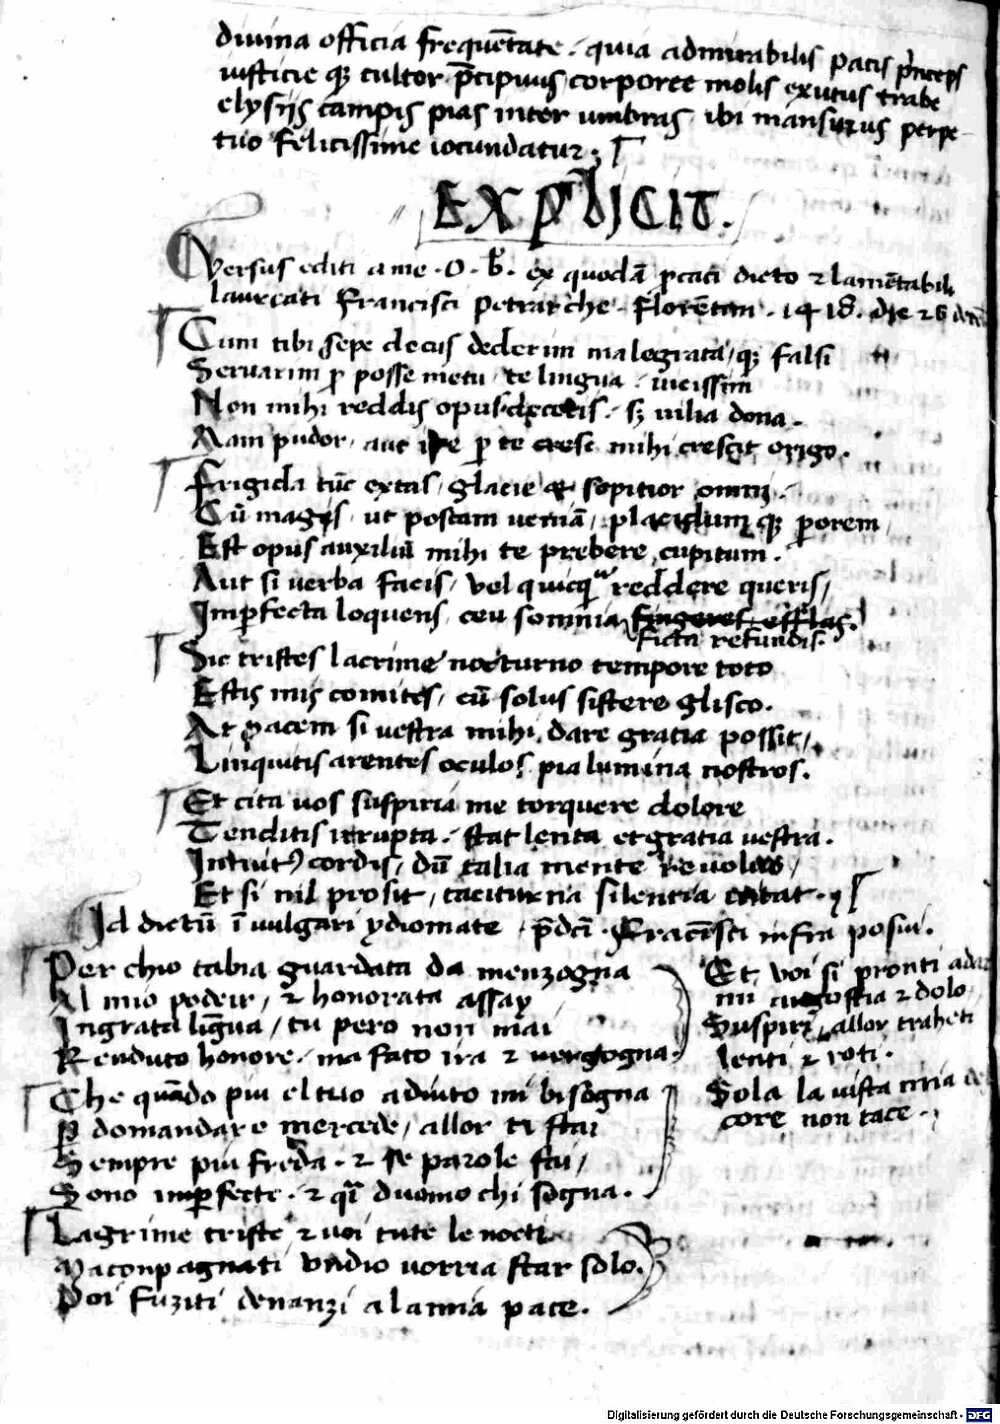 diuina officia frequẽtate. quia admirabilis pacis p̃nceps
iusticie qȝ cultor p̃cipuus corporee molis exutus trabe
elysijs campis pias inter umbras ibi mansurus perpe-
tuo felicissime iocundatur.
EXPLICIT.
Versus editi a me. O. b̃. ex quodã p̱caci dicto ⁊ lamẽtabili
laureati Francisci Petrarche. Florẽtini. 1418. die 26
Cum tibi sepe decus dederim male grata, qȝ falsi
Seruarim p̱ posse metu, te lingua. uicissim
Non mihi reddis opus decoris. sȝ uilia dona.
Nam pudor, aut ire p̱ te mihi crescit origo.
Frigida tũc extas, glacie qȝ sopitior omni.
Cũ magis, ut poscam ueniã, placidumqȝ p̱orem
Est opus auxiliũ mihi te prebere cupitum.
Aut si verba facis, vel quicq̃ reddere queris,
Imp̱fecta loquens, ceu somnia fingeret efflas.
ficta refundis.
Sic tristes lacrime nocturno tempore toto
Estis mis comites, cũ solus sistere glisco.
At pacem si uestra mihi dare gratia possit,
Linquitis arentes oculos pia lumina nostros.
Et cita uos suspiria me torquere dolore
Tenditis irrupta. stat lenta et gratia uestra.
Intuitꝰ cordis, dũ talia mente reuoluo,
Et si nil prosit, taciturna silentia uitat.
Id dictũ ĩ vulgari ydiomate, p̃dc̃i. Frãcisci infra posui.
Per chio tabia guardata da menzogna
Al mio podeir, ⁊ honorata assay
Ingrata lĩgua, tu pero non mai
Renduto honore. ma fato ira ⁊ vergogna.
Che quãdo piu el tuo adiuto mi bisogna
P̱ domandare mercede, allor ti stai
Sempre piu freda. ⁊ se parole fai,
Sono imp̱fecte. ⁊ q̃i duomo chi sogna.
Lagrime triste, ⁊ uoi tute le nocti
Maconpagnati undio uorria star solo.
Poi fuziti denanzi a la mia pace.
Et voi si pronti a dar
mi angostia ⁊ dolo
Suspiri, allor traheti
lenti ⁊ roti.
Sola la uista mia de
core non tace.
Digitalisierung gefördert durch die Deutsche Forschungsgemeinschaft - DFG